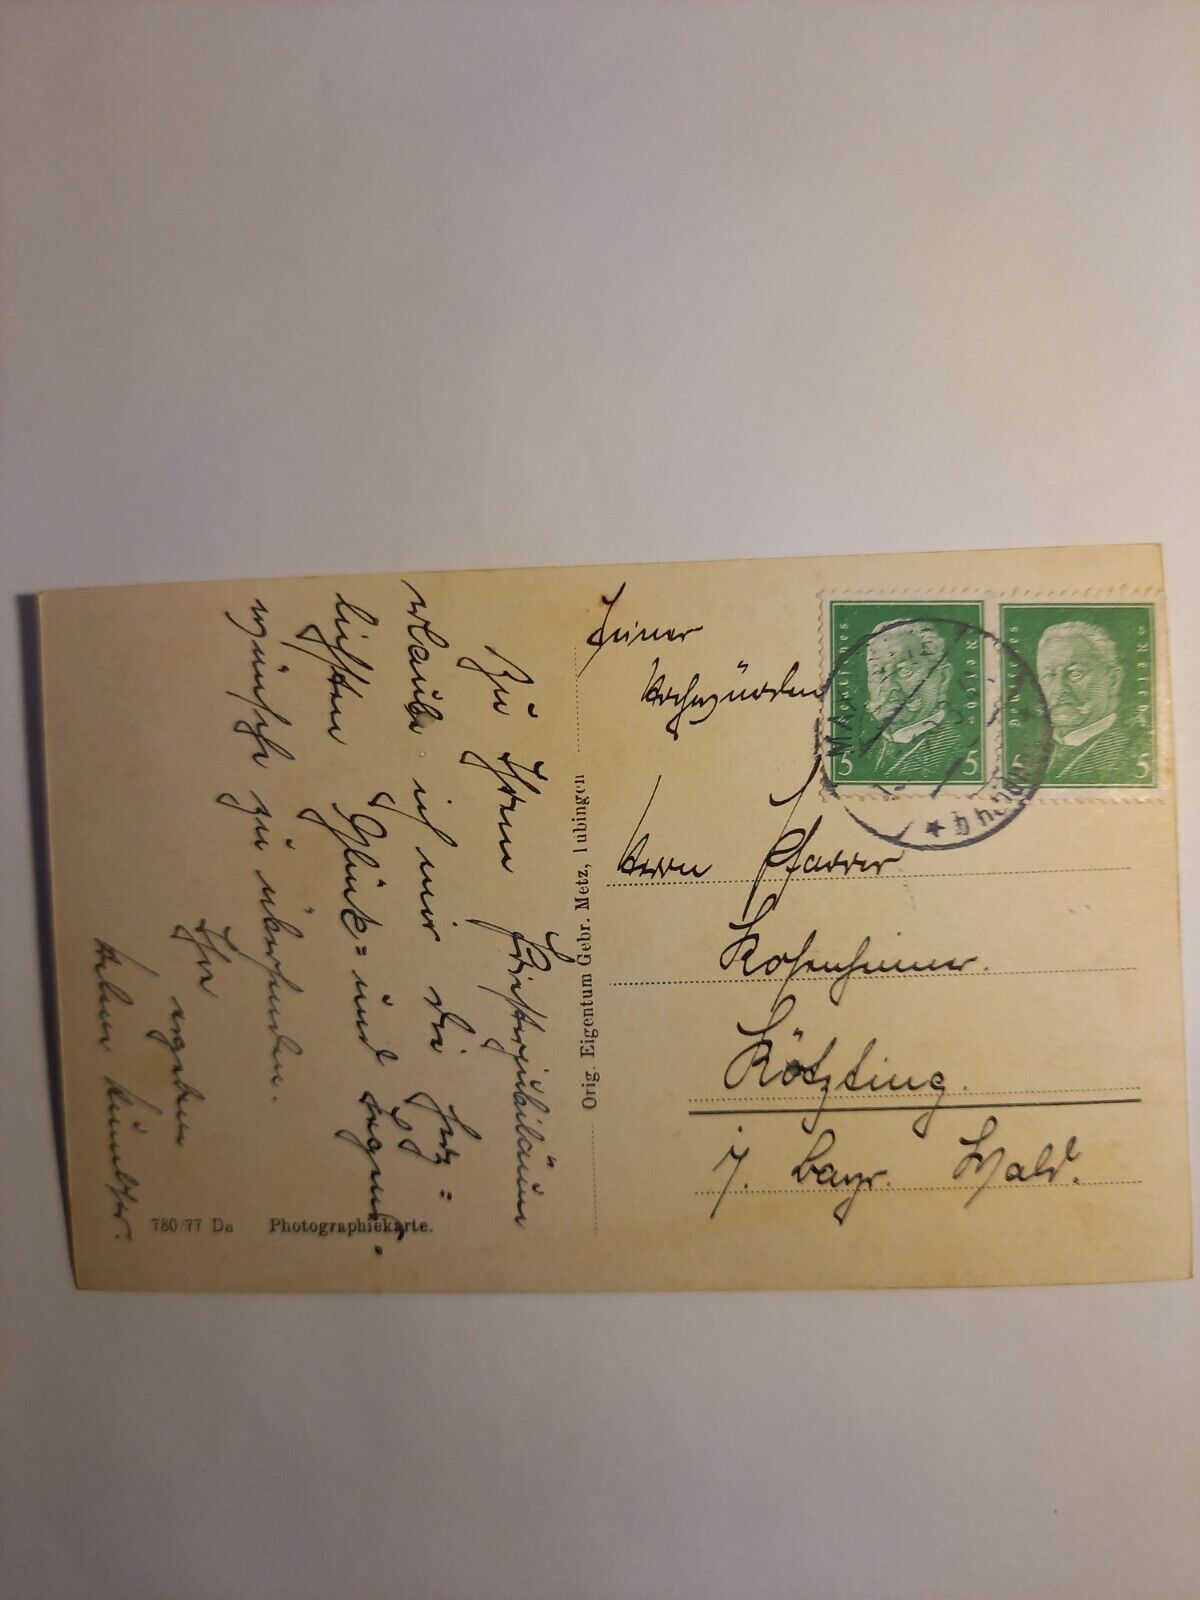 Zu Ihrem Priesterjubiläum
erlaube ich mir die herz=
lichsten Glück= und Segens=
wünsche zu übersenden.
Ihr
ergeben
780/77 Da Photographiekarte.
Orig. Eigentum Gebr. Metz, Tübingen
Seiner
Hochwürden
Herrn Pfarrer
Rosenheimer.
Kötzting.
b. bayr. Wald.
Deutsches Reich
5 5
Deutsches Reich
5 5